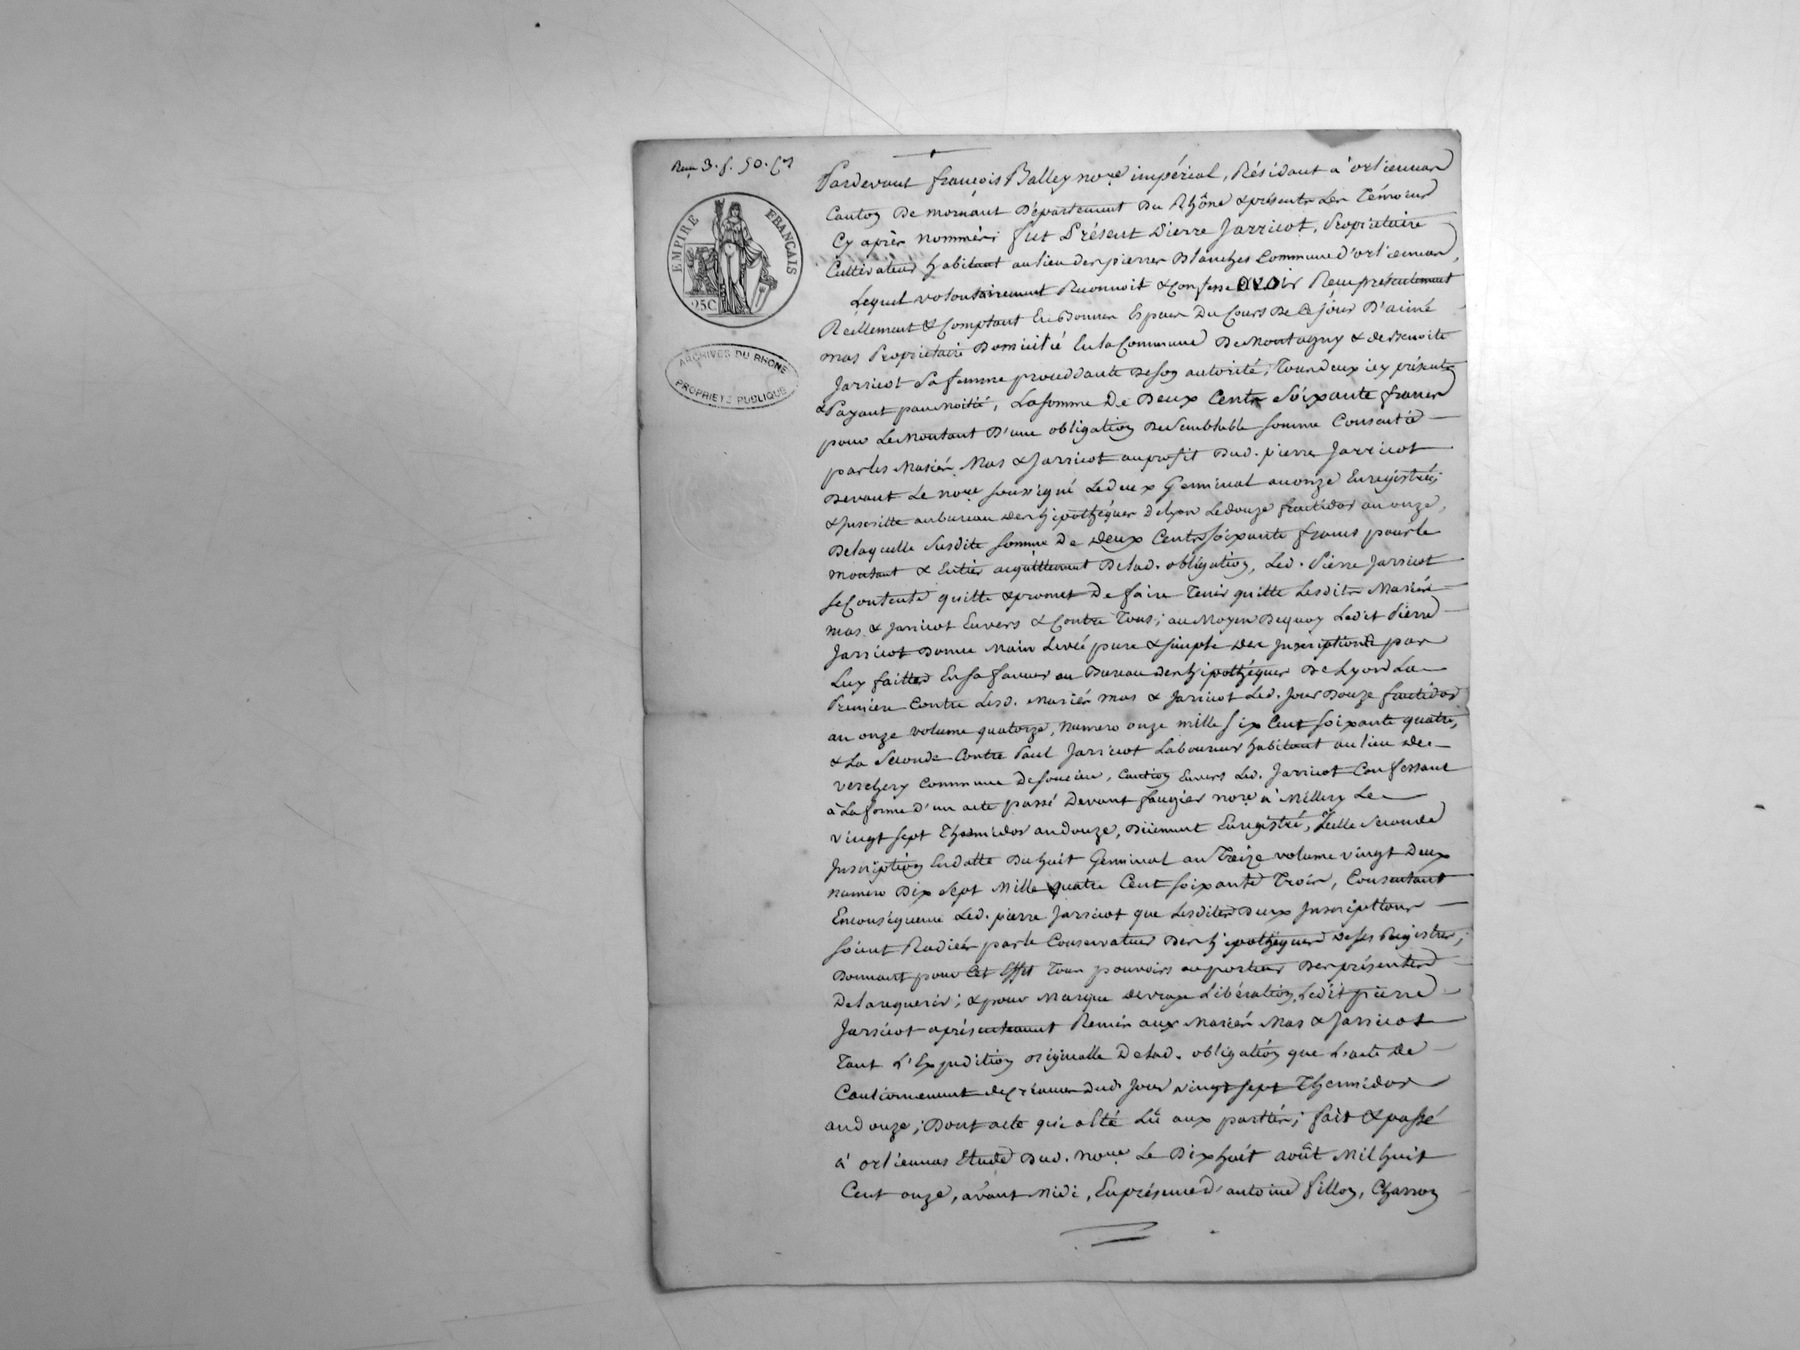 Reçu 3. f. 50. C.
EMPIRE FRANÇAIS
25C
ARCHIVES DU RHONE
PROPRIETE PUBLIQUE
Pardevant françois Balley no.re impérial, Résidant à orliennas
Canton De mornant Département Du Rhône & présents Les Témoins
Cy après nommés; fut Présent Pierre Jarricot, Propriétaire
Cultivateur habitant au lieu des pierres Blanches Commune d'orliennas,
Lequel volontairement Reconnoit & Confesse avoir Reçu présentement
Réellement & Comptant En bonnes Espèces Du Cours De Ce jour D'aimé
mas Propriétaire Domicilié En la Commune De Montagny & de Benoite
Jarricot Sa femme procédante De son autorité, Tous deux icy présents
& Payant par Moitié, La somme De Deux Cents Soixante francs
pour Le Montant D'une obligation De Semblable somme Consentie
par les Mariés Mas & Jarricot au profit Dud. pierre Jarricot
Devant Le no.re soussigné Le deux Germinal an onze Enregistrée
& Inscritte au bureau des hipothéques de lyon Le douze fructidor an onze,
De laquelle Susdite somme De Deux Cents soixante francs pour le
montant & Entier acquittement De lad. obligation, Led. Pierre Jarricot
se Contente quitte & promet De faire Tenir quitte Lesdits Mariés
mas & Jarricot Envers & Contre Tous; au Moyen De quoy Ledit Pierre
Jarricot Donne Main Levée pure & simple Des Inscriptions par
Luy faittes En sa faveur au Bureau des hipothéques De Lyon La
Premiere Contre Lesd. Mariés mas & Jarricot Led. Jour Douze fructidor
an onze volume quatorze, Numero onze mille six Cent soixante quatre,
& La Seconde Contre Paul Jarricot Laboureur habitant au lieu De
verchery Commune De soucieu, Caution Envers Led. Jarricot Confessant
à La forme D'un acte passé Devant faugier no.re à Millery Le
vingt sept Thermidor an douze, Dûement Enregistré, Icelle Seconde
Inscription En datte Du huit Germinal an Treize volume vingt Deux
numero Dix Sept Mille quatre Cent soixante Trois, Consentant
En conséquence Led. pierre Jarricot que Lesdites Deux Inscriptions
soient Radiées par le Conservateur Des hipothéques De ses Registres,
Donnant pour Cet Effet Tous pouvoirs au porteur Des présentes
De La requerir; & pour Marque De vraye Libération, Ledit pierre
Jarricot a présentement Remis aux Mariés Mas & Jarricot
Tant L'Expédition originalle De lad. obligation que L'acte De
Cautionnement dud. Jour vingt sept Thermidor
an douze; Dont acte qui a été Lû aux parties; fait & passé
à orliennas Etude Dud. No.re Le Dix huit août Mil huit
Cent onze, avant Midi, En présence d'antoine fillon, Charron